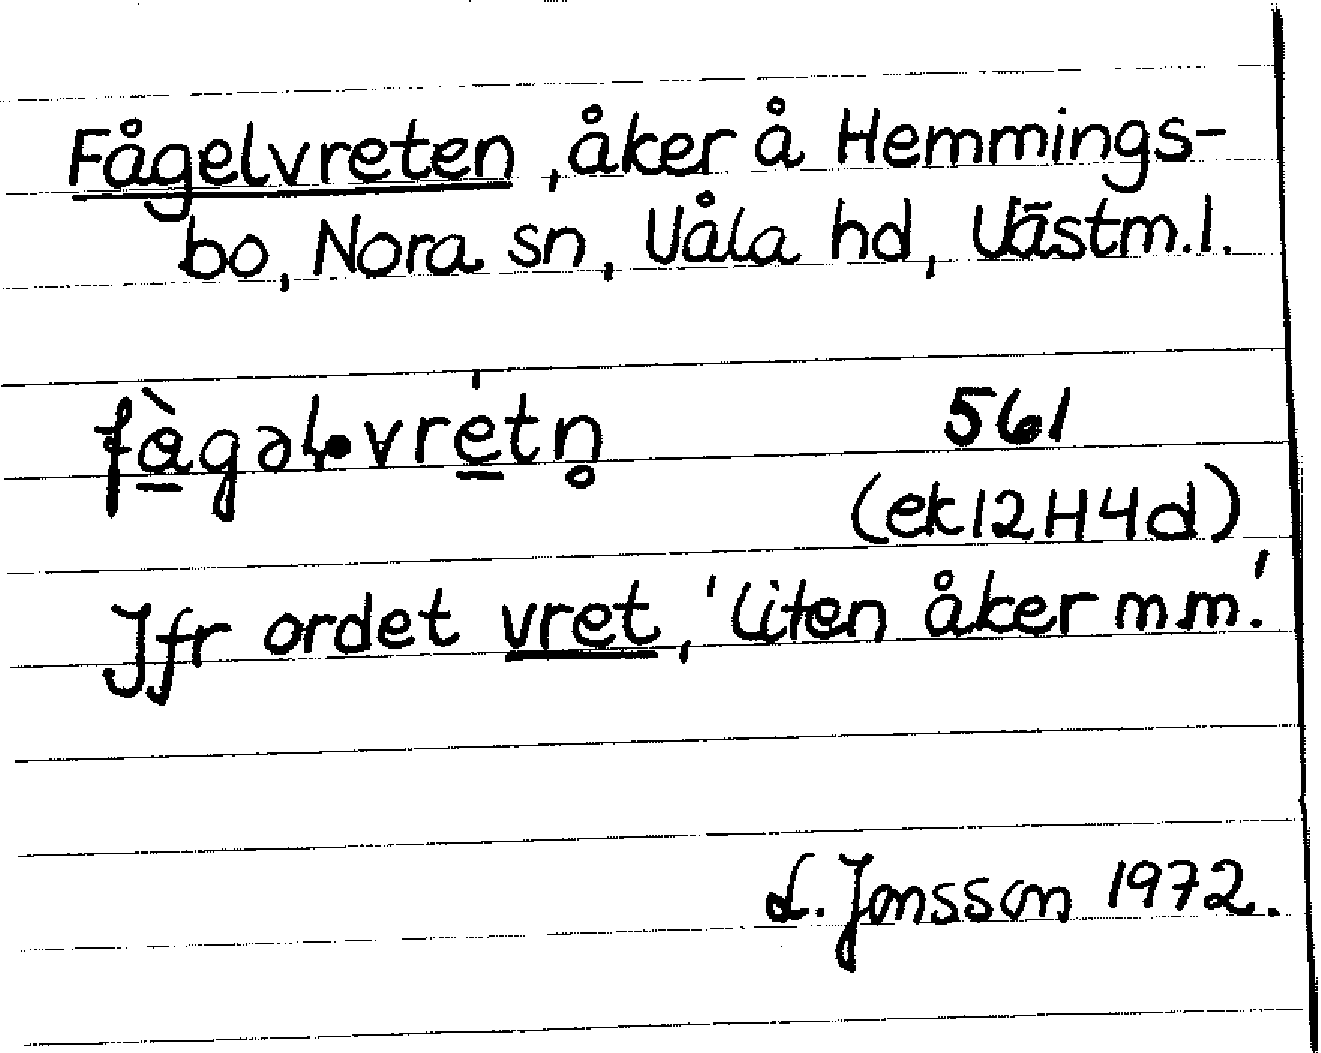 Fågelvreten, åker å Hemmings-
bo, Nora sn, Våla hd, Västm.l.
fàgəł•vrétn̥ 561
(ek12H4d)
Jfr ordet vret, 'liten åker m.m.'
L. Jonsson 1972.